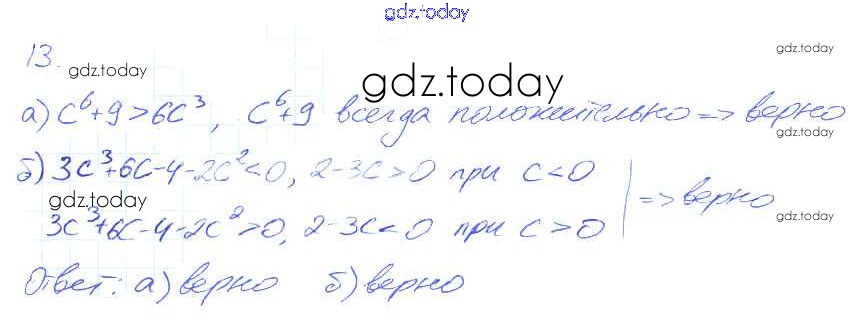 gdz.today
13.
gdz.today
gdz.today
gdz.today
а) c⁶+9>6c³, c⁶+9 всегда положительно => верно
gdz.today
б) 3c³+6c-4-2c²<0, 2-3c>0 при c<0
=> верно
gdz.today
gdz.today
3c³+6c-4-2c²>0, 2-3c<0 при c>0
Ответ: а) верно б) верно